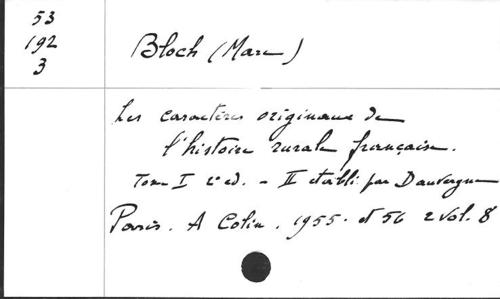 53
192
3
Bloch (Marc)
Les caractères originaux de
l'histoire rurale française.
Tome I 2e ed. - II établi par Dauvergne
Paris. A Colin. 1955. et 56 2 vol. 8